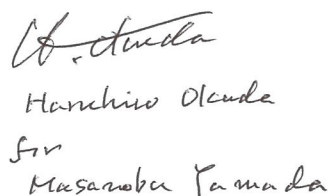 H. Okuda
Haruhiro Okuda
for
Masanobu Yamada